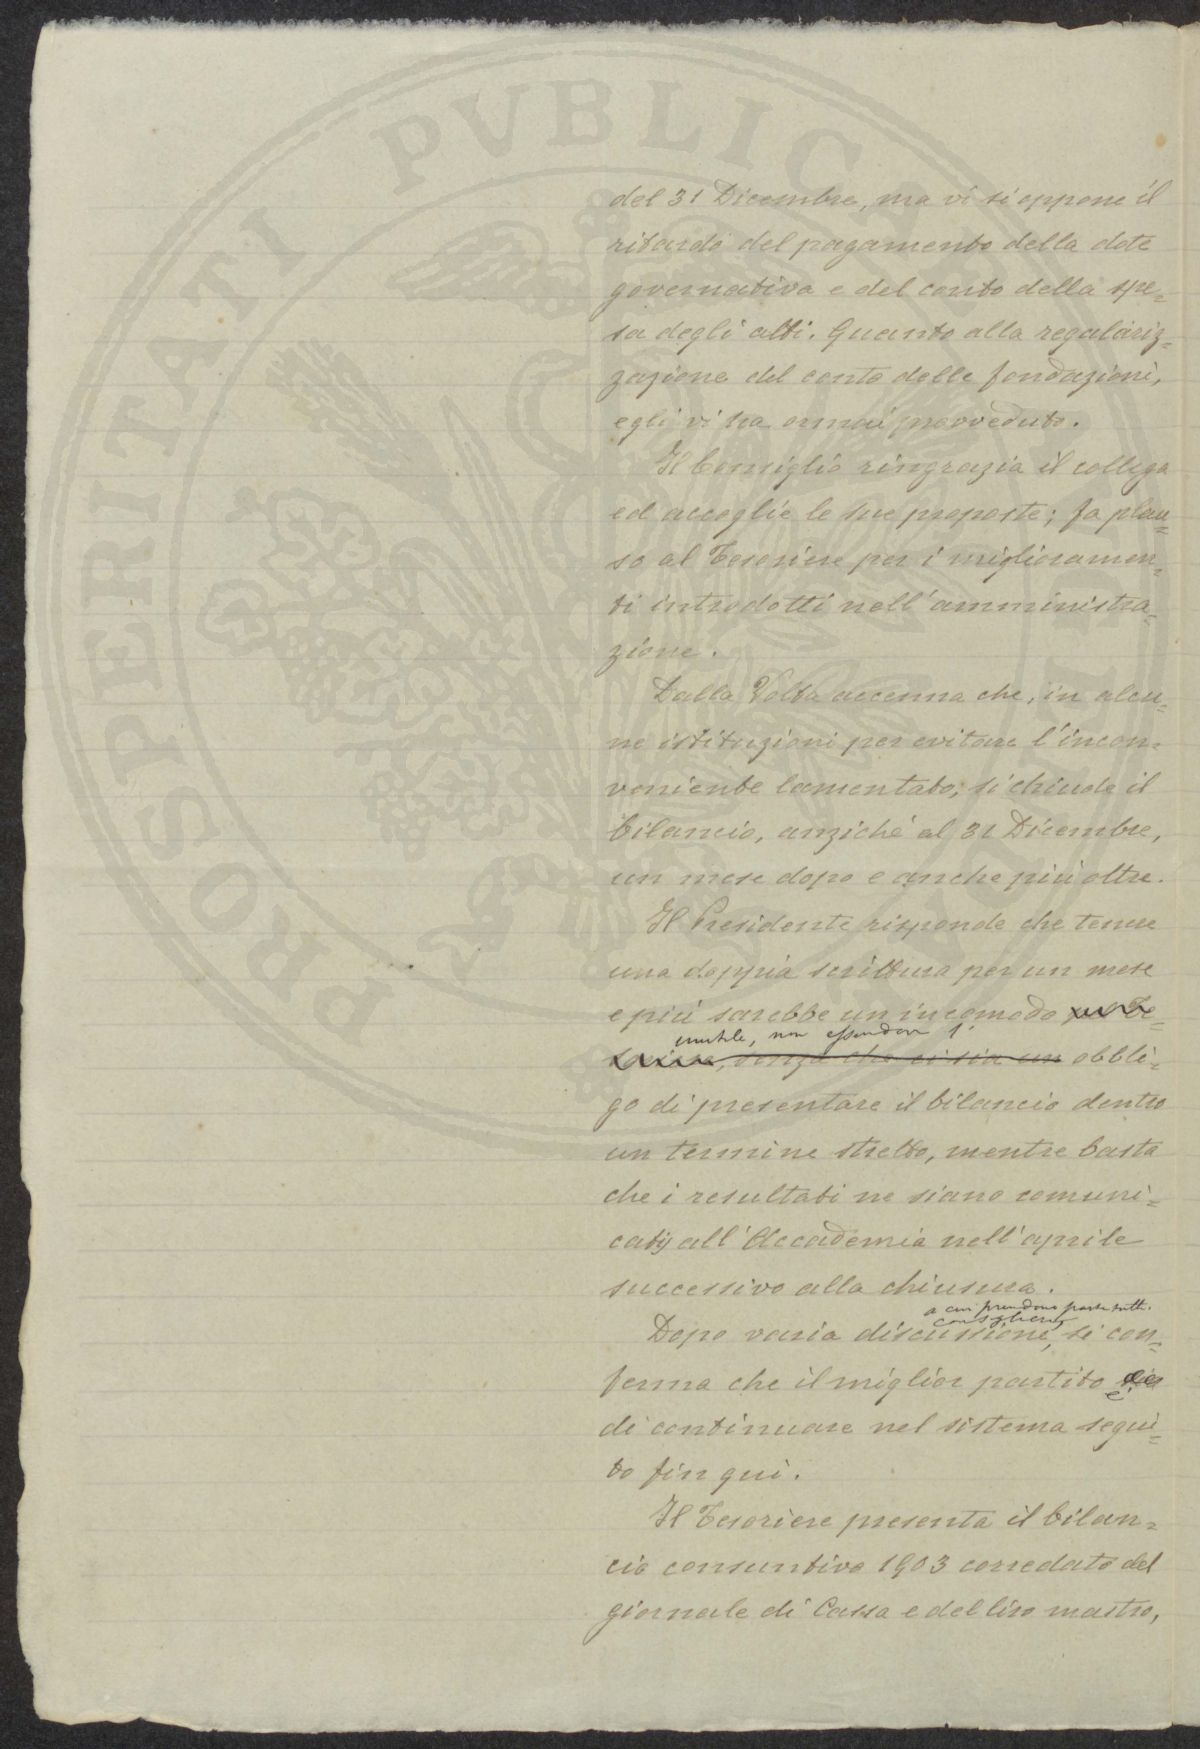 del 31 Dicembre, ma vi si oppone il
ritardo del pagamento della dote
governativa e del conto della spe=
sa degli atti. Quanto alla regolariz=
zazione del conto delle fondazioni,
egli vi ha ormai provveduto.
Il Consiglio ringrazia il collega
ed accoglie le sue proposte; fa plau=
so al Tesoriere per i miglioramen=
ti introdotti nell'amministra=
zione.
Dalla Volta accenna che, in alcu=
ne istituzioni per evitare l'incon=
veniente lamentato, si chiude il
bilancio, anziché al 31 Dicembre,
un mese dopo e anche più oltre.
Il Presidente risponde che tenere
una doppia scrittura per un mese
e più sarebbe un incomodo
inutile, non essendovi l'
senza che ci sia un obbli=
go di presentare il bilancio dentro
un termine stretto, mentre basta
che i resultati ne siano comuni=
cati all'Accademia nell'aprile
successivo alla chiusura.
a cui prendono parte tutti i
consiglieri,
Dopo varia discussione, si con=
ferma che il miglior partito è
di continuare nel sistema segui=
to fin qui.
Il Tesoriere presenta il bilan=
cio consuntivo 1903 corredato del
giornale di Cassa e del liro mastro,
PROSPERITATI PVBLICAE